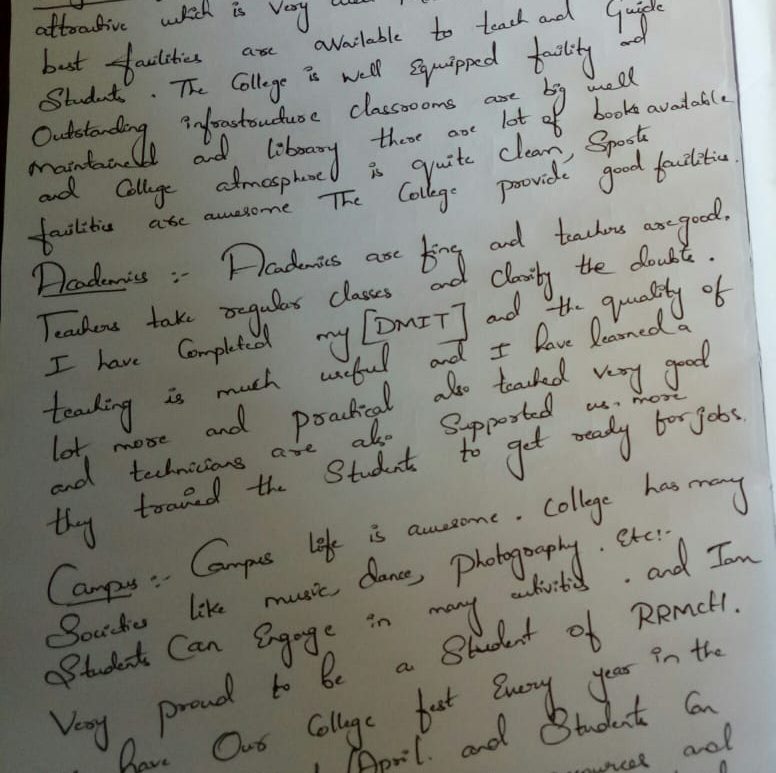 attractive which is Very
best facilities are available to teach and Guide
Students. The College is well Equipped facility and
Outstanding infrastructure classrooms are big well
maintained and library there are lot of books available
and College atmosphere is quite clean, Sports
facilities are awesome The College provide good facilities.
Academics :- Academics are fine and teachers are good.
Teachers take regular classes and Clarify the doubts.
I have Completed my [DMIT] and the quality of
teaching is much useful and I have learned a
lot more and practical also teached very good
and technicians are also Supported us. more
they trained the Students to get ready for jobs.
Campus :- Campus life is awesome. College has many
Societies like music, dance, photography. Etc:-
Students Can Engage in many activities. and I am
Very proud to be a Student of RRMCH.
have Our College fest Every year in the
April. and Students Can
and